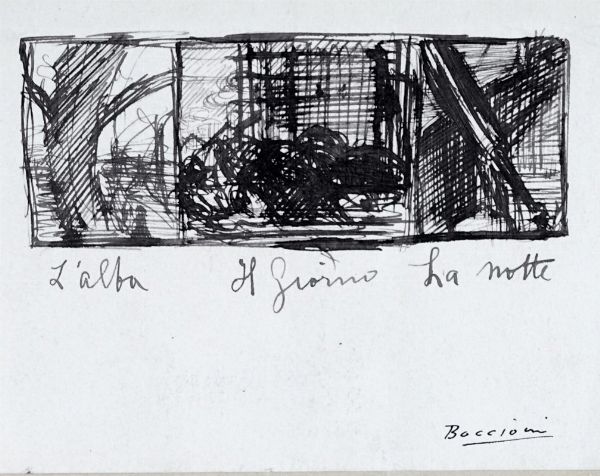 L'alba Il Giorno La notte
Boccioni